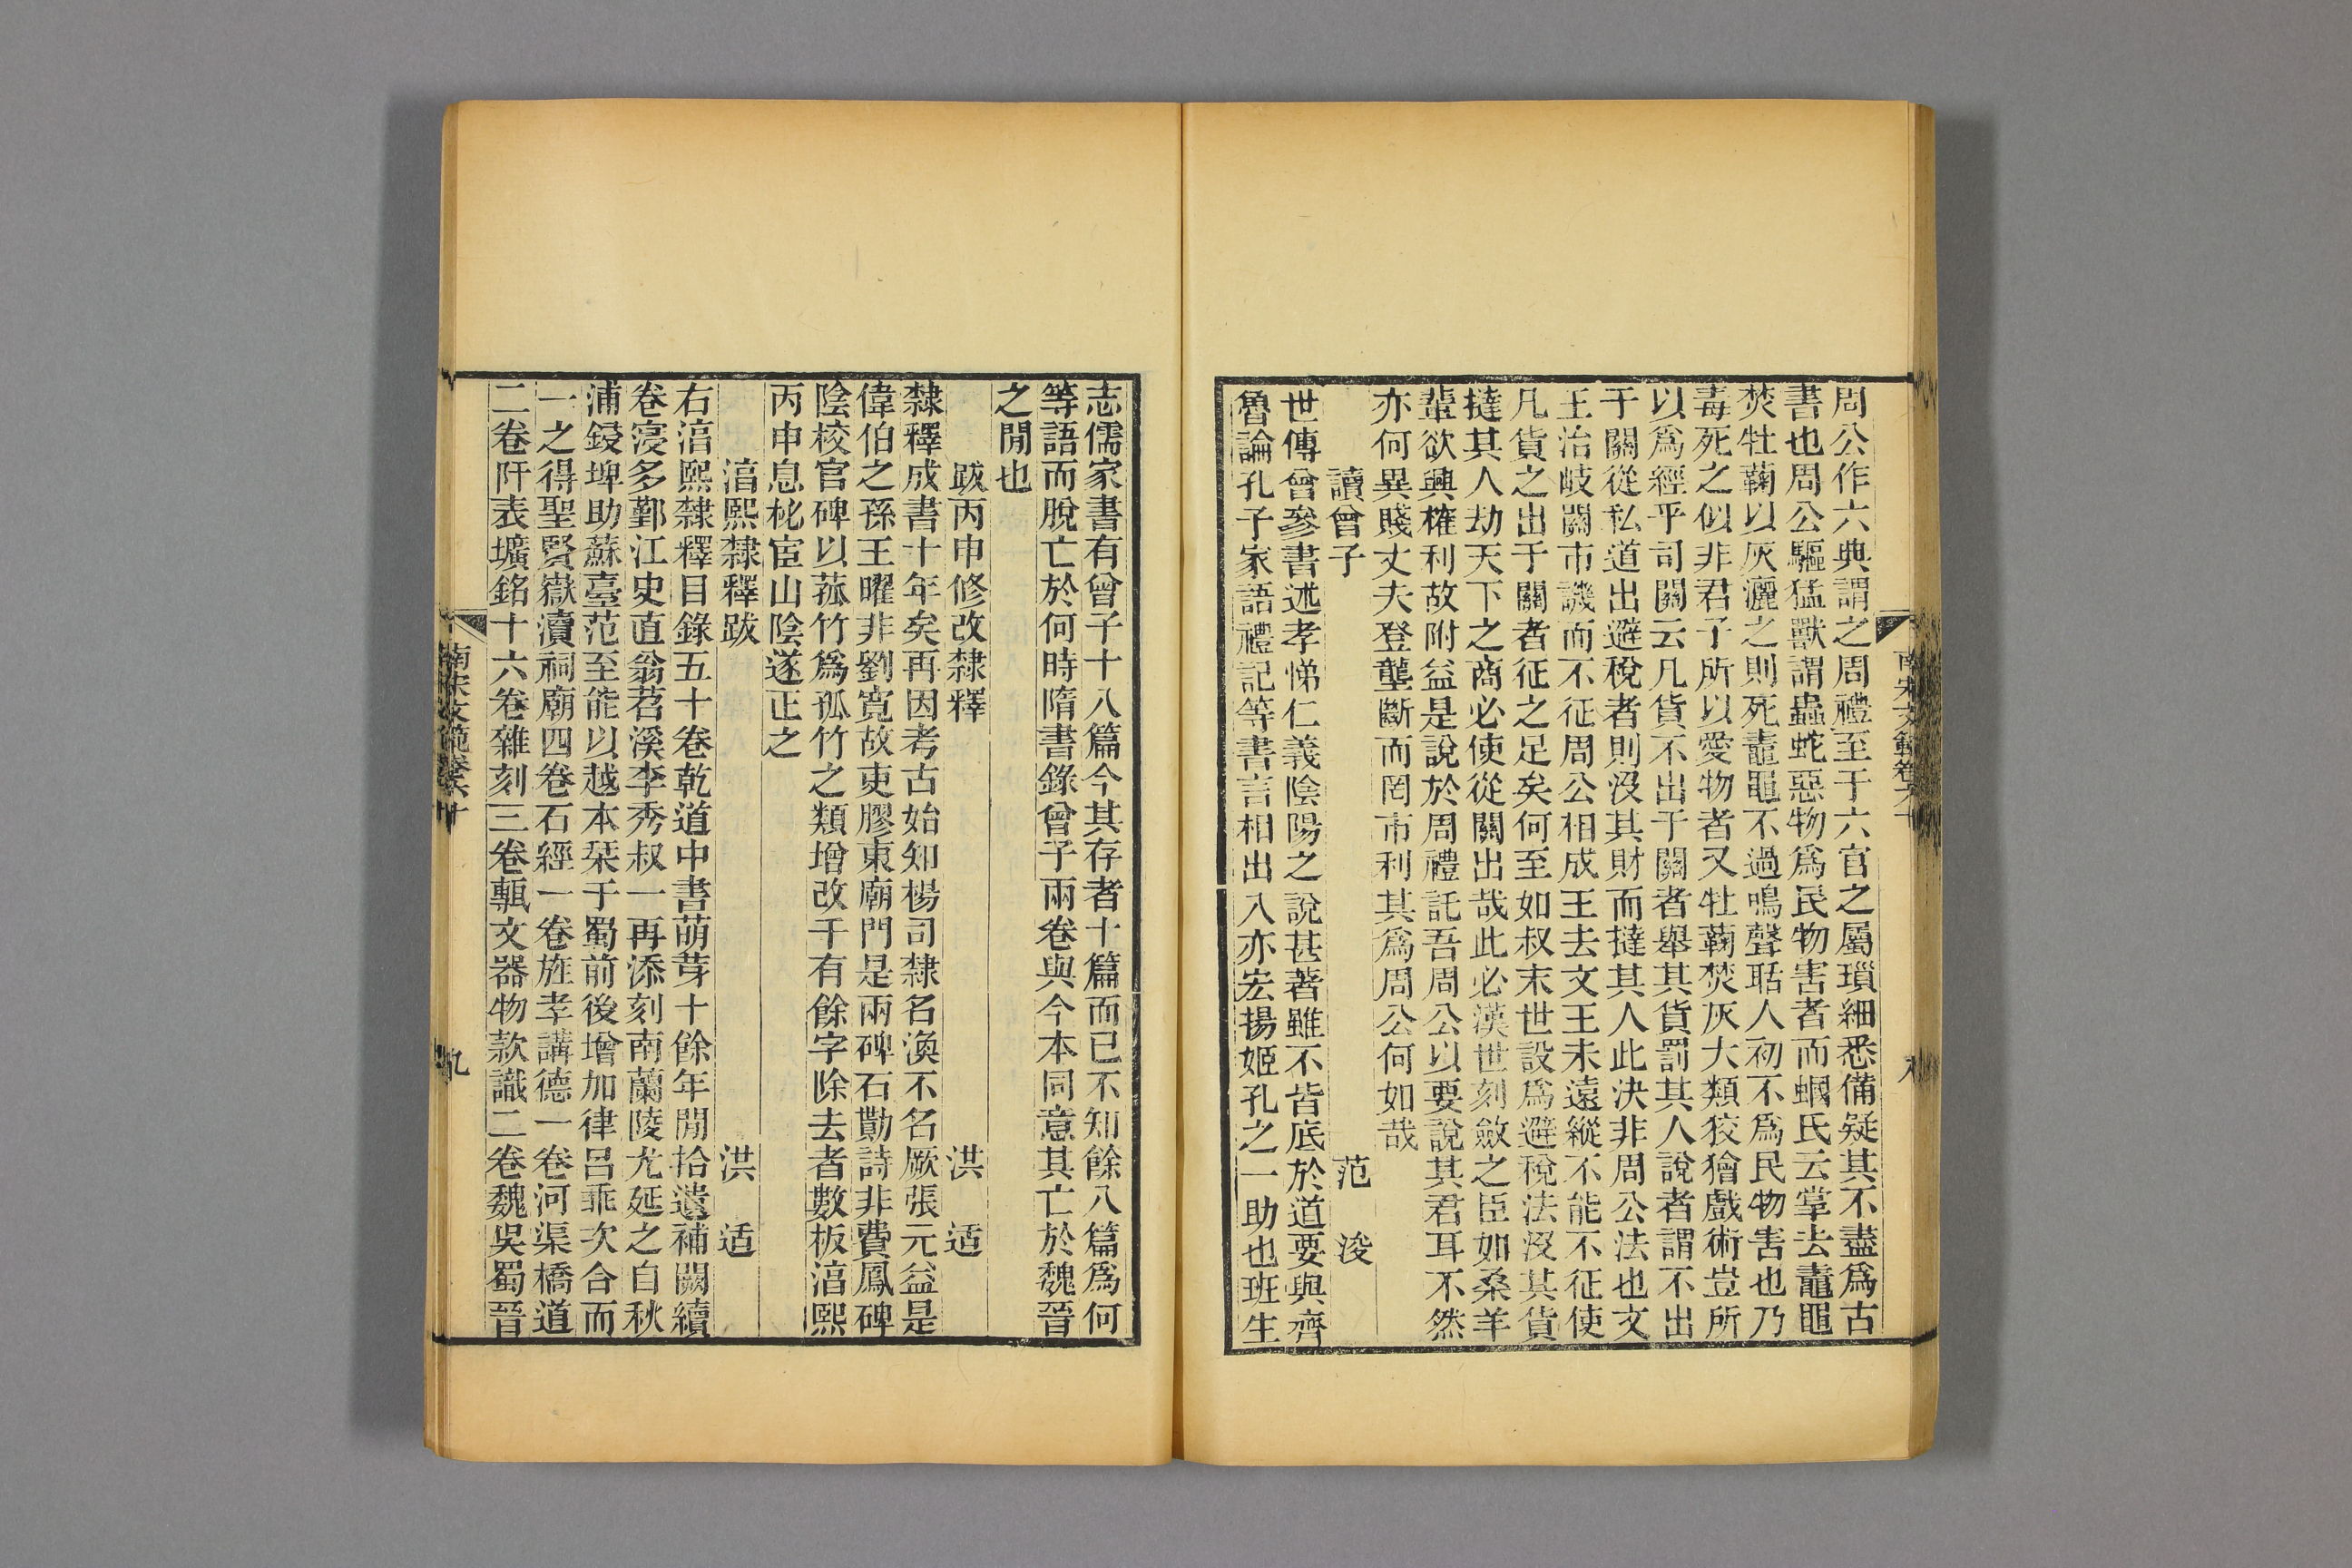 周公作六典謂之周禮至于六官之屬瑣細悉備疑其不盡爲古
書也周公驅猛獸謂蟲蛇惡物爲民物害者而蟈氏云掌去鼃黽
焚牡蘜以灰灑之則死鼃黽不過鳴聲聒人初不爲民物害也乃
毒死之似非君子所以愛物者又牡蘜焚灰大類狡獪戲術豈所
以爲經乎司關云凡貨不出于關者舉其貨罰其人說者謂不出
于關從私道出避稅者則沒其財而撻其人此決非周公法也文
王治岐關市譏而不征周公相成王去文王未遠縱不能不征使
凡貨之出于關者征之足矣何至如叔末世設爲避稅法沒其貨
撻其人劫天下之商必使從關出哉此必漢世刻斂之臣如桑羊
輩欲興榷利故附益是說於周禮託吾周公以要說其君耳不然
亦何異賤丈夫登壟斷而罔市利其爲周公何如哉
讀曾子 范浚
世傳曾參書述孝悌仁義陰陽之說甚著雖不皆底於道要與齊
魯論孔子家語禮記等書言相出入亦宏揚姬孔之一助也班生
南宋文範卷六十
八
志儒家書有曾子十八篇今其存者十篇而已不知餘八篇爲何
等語而脫亡於何時隋書錄曾子兩卷與今本同意其亡於魏晉
之閒也
跋丙申修改隸釋 洪适
隸釋成書十年矣再因考古始知楊司隸名渙不名厥張元益是
偉伯之孫王曜非劉寬故吏膠東廟門是兩碑石勤詩非費鳳碑
陰校官碑以菰竹爲孤竹之類增改千有餘字除去者數板湻熙
丙申息杝宦山陰遂正之
湻熙隸釋跋 洪适
右湻熙隸釋目錄五十卷乾道中書萌芽十餘年閒拾遺補闕續
卷寖多鄞江史直翁苕溪李秀叔一再添刻南蘭陵尤延之自秋
浦鋟埤助蘇臺范至能以越本栞于蜀前後增加律呂乖次合而
一之得聖賢嶽瀆祠廟四卷石經一卷旌孝講德一卷河渠橋道
二卷阡表壙銘十六卷雜刻三卷甎文器物款識二卷魏吳蜀晉
南宋文範卷六十
九